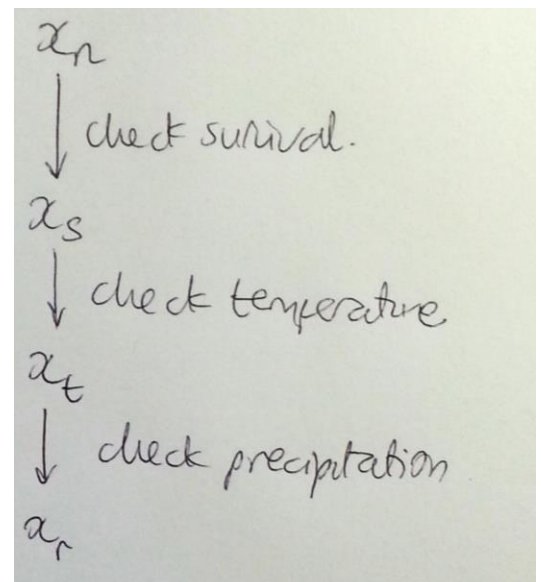 xₙ
check surival.
xₛ
check temperature
xₜ
check precipitation
xᵣ